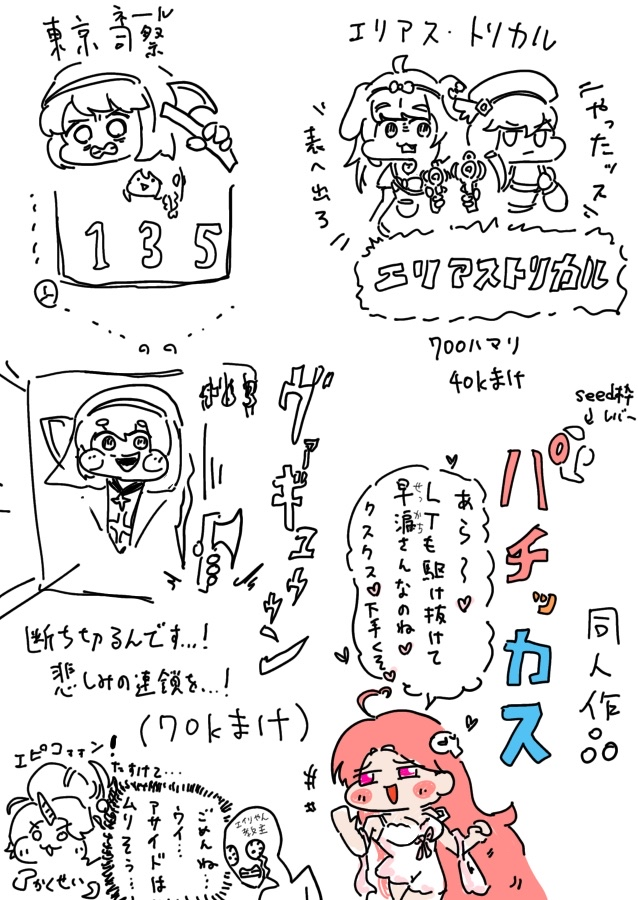 東京ネール司祭
135
エリアス・トリカル
やったッス
表へ出ろ
エリアストリカル
700ハマリ
40kまけ
断ち切るんです…!
悲しみの連鎖を…!
(70kまけ)
seed枠
レバー
パチッカス
同人作
あら〜♥
LTも駆け抜けて
早漏さんなのね♥
せっかち
クスクス♥下手くそ♥
エピコォォン!
たすけて…
かくせい
ごめんね…
ウイ…
アサイドは
ムリそう…
エイリやん
教主